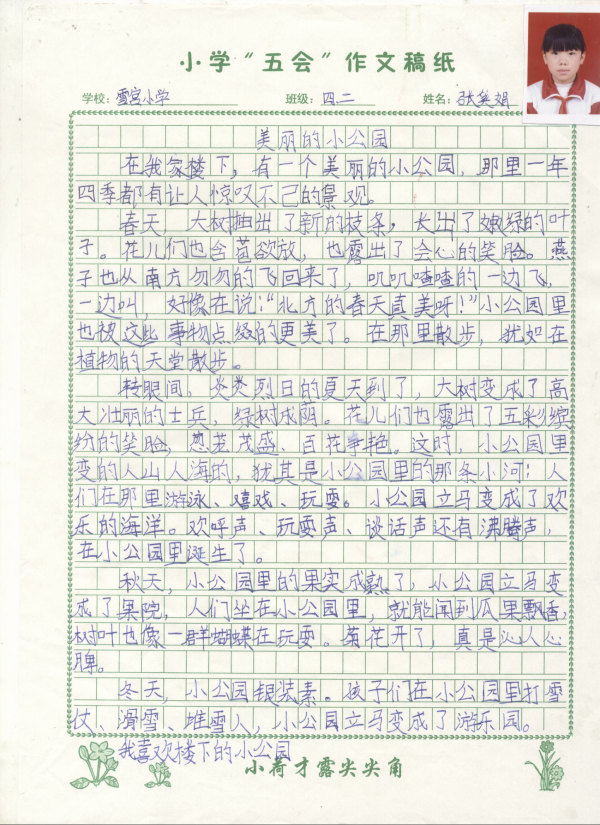 小学“五会”作文稿纸
学校：雪宫小学 班级：四.二 姓名：张美娟
美丽的小公园
在我家楼下，有一个美丽的小公园，那里一年
四季都有让人惊叹不已的景观。
春天，大树抽出了新的枝条，长出了嫩绿的叶
子。花儿们也含苞欲放，也露出了会心的笑脸。燕
子也从南方匆匆的飞回来了，叽叽喳喳的一边飞，
一边叫，好像在说：“北方的春天真美呀！”小公园里
也被这些事物点缀的更美了。在那里散步，犹如在
植物的天堂散步。
转眼间，炎炎烈日的夏天到了，大树变成了高
大壮丽的士兵，绿树成荫。花儿们也露出了五彩缤
纷的笑脸，葱茏茂盛、百花争艳。这时，小公园里
变的人山人海的，犹其是小公园里的那条小河；人
们在那里游泳、嬉戏、玩耍。小公园立马变成了欢
乐的海洋。欢呼声、玩耍声、谈话声还有沸腾声，
在小公园里诞生了。
秋天，小公园里的果实成熟了，小公园立马变
成了果院，人们坐在小公园里，就能闻到瓜果飘香，
树叶也像一群蝴蝶在玩耍。菊花开了，真是沁人心
脾。
冬天，小公园银装素。孩子们在小公园里打雪
仗、滑雪、堆雪人，小公园立马变成了游乐园。
我喜欢楼下的小公园
小荷才露尖尖角